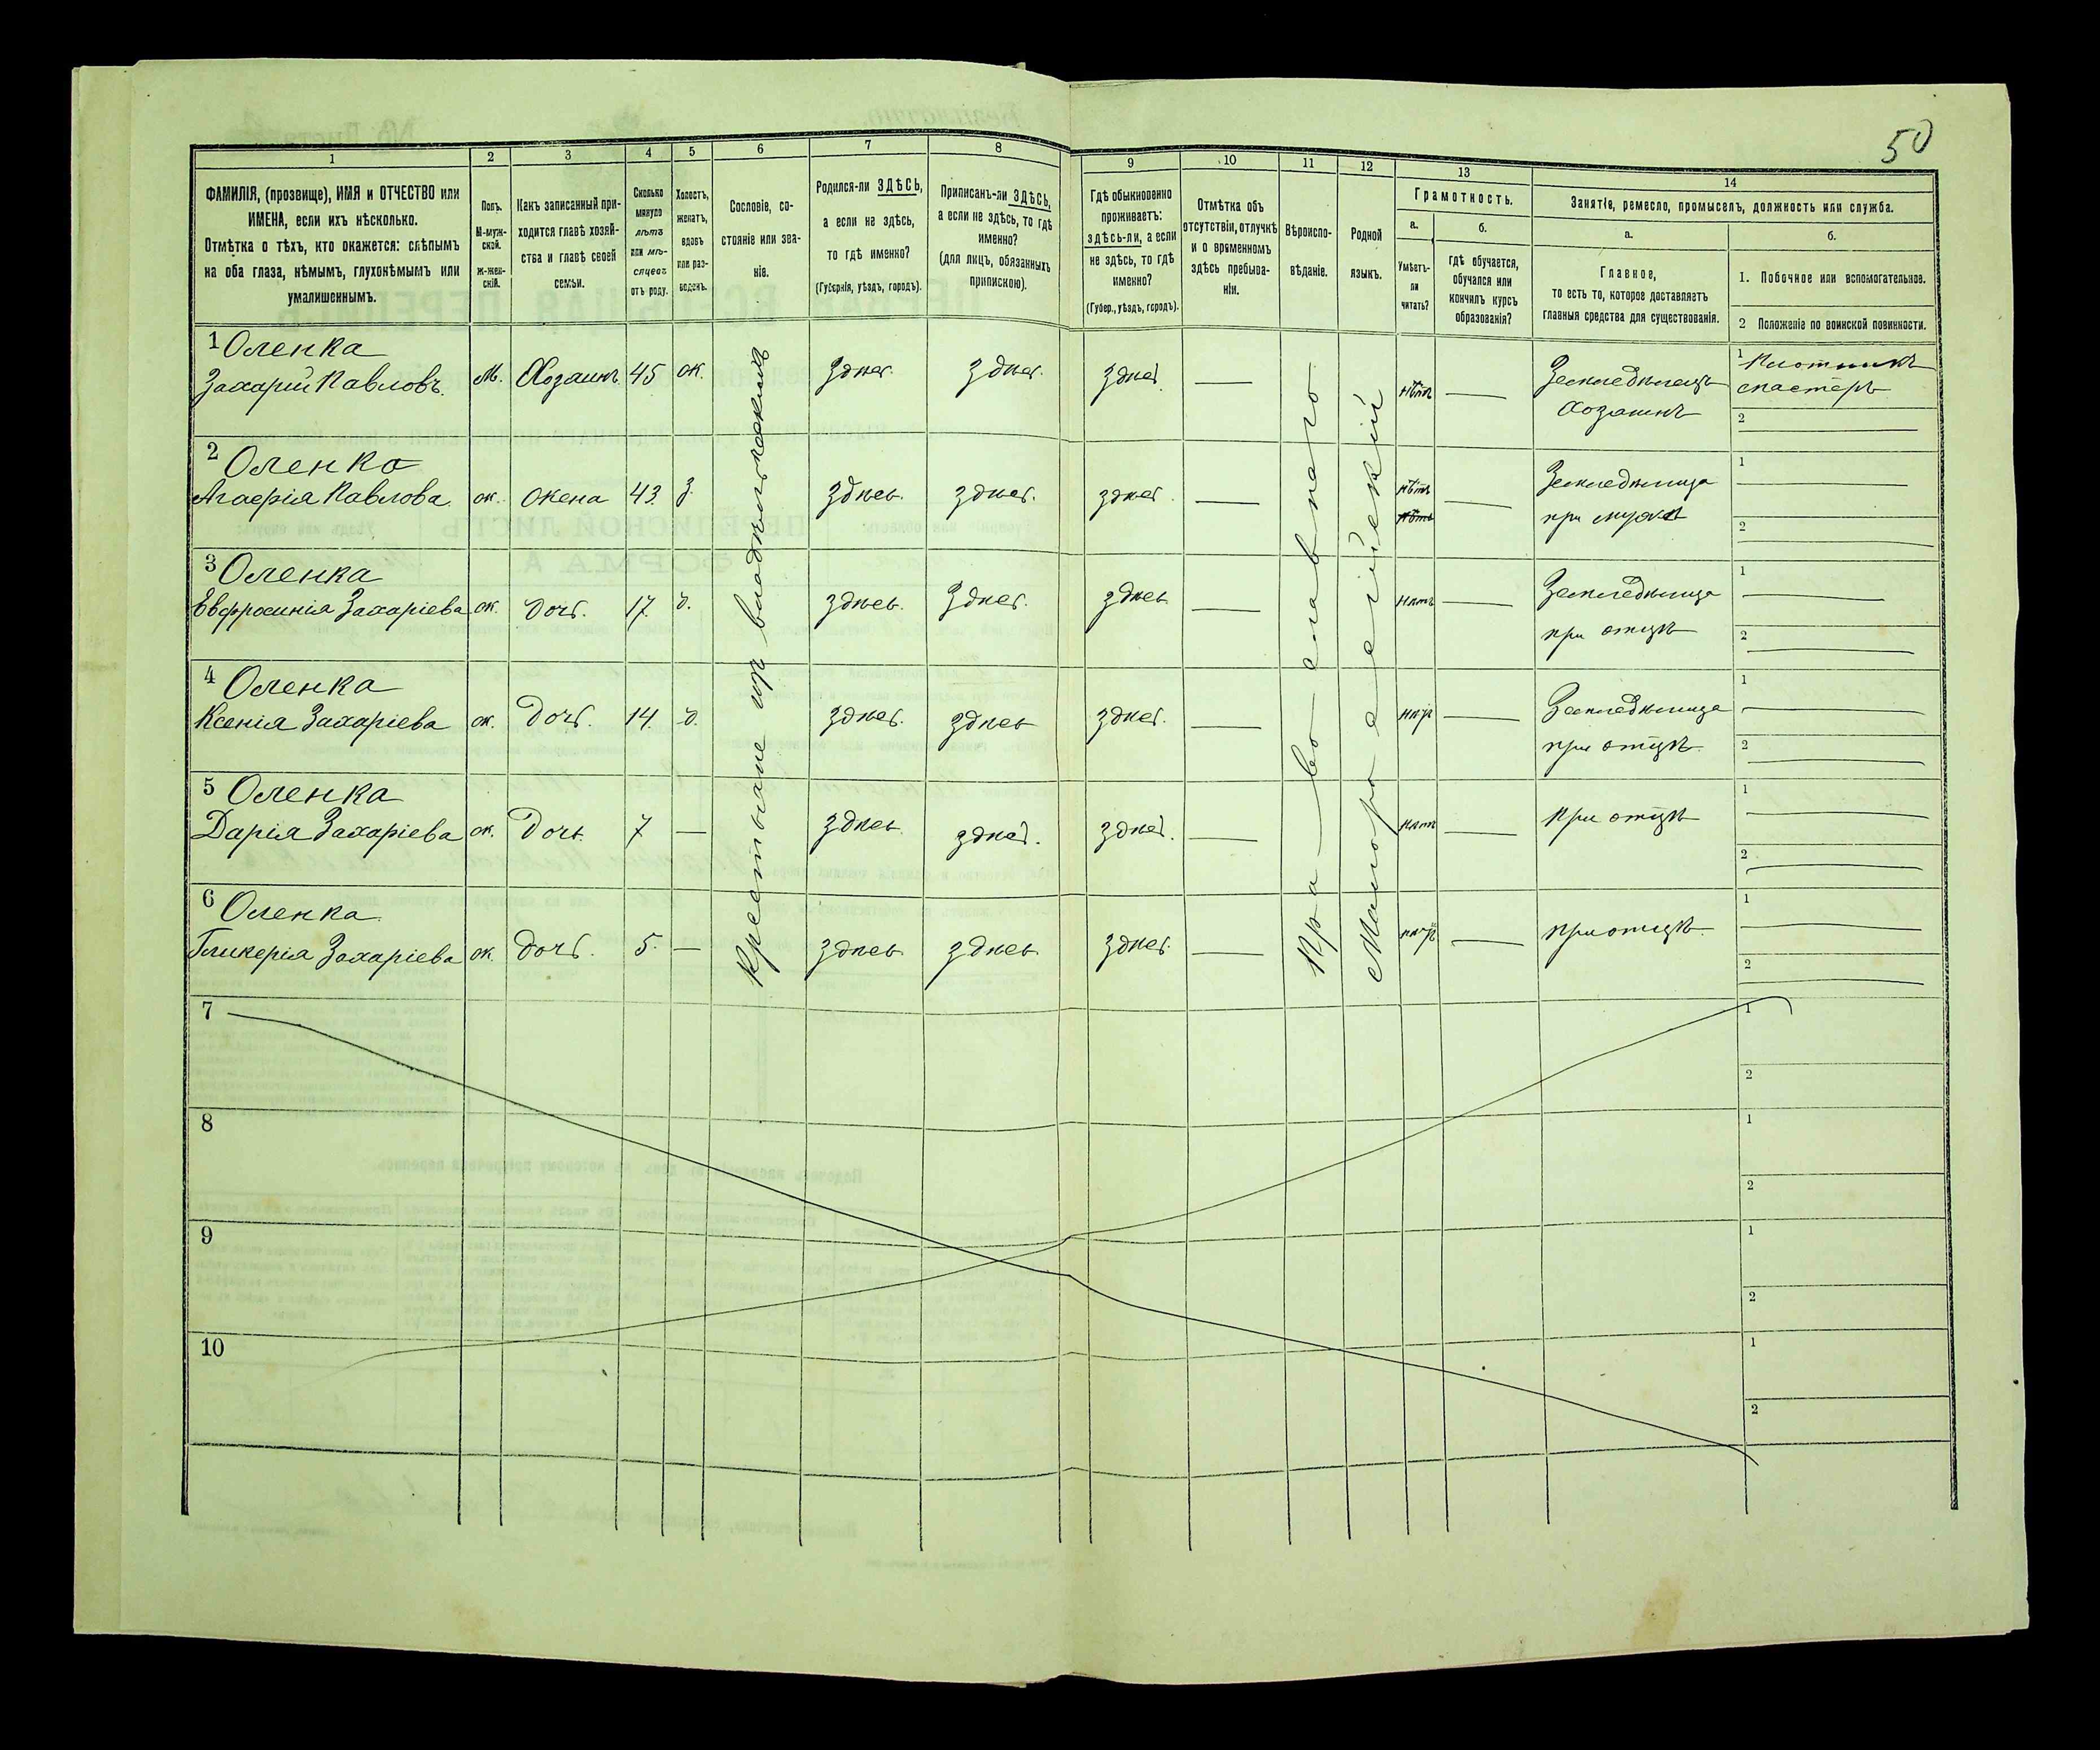 50
1
2
3
4
5
6
7
8
9
10
11
12
13
14
ФАМИЛІЯ, (прозвище), ИМЯ и ОТЧЕСТВО или
ИМЕНА, если ихъ нѣсколько.
Отмѣтка о тѣхъ, кто окажется: слѣпымъ
на оба глаза, нѣмымъ, глухонѣмымъ или
умалишеннымъ.
Полъ.
М-муж-
ской.
ж-жен-
скій.
Какъ записанный при-
ходится главѣ хозяй-
ства и главѣ своей
семьи.
Сколько
минуло
лѣтъ
или мѣ-
сяцевъ
отъ роду.
Холостъ,
женатъ,
вдовъ
или раз-
веденъ.
Сословіе, со-
стояніе или зва-
ніе.
Родился-ли ЗДѢСЬ,
а если не здѣсь,
то гдѣ именно?
(Губернія, уѣздъ, городъ).
Приписанъ-ли ЗДѢСЬ,
а если не здѣсь, то гдѣ
именно?
(для лицъ, обязанныхъ
припискою).
Гдѣ обыкновенно
проживаетъ:
здѣсь-ли, а если
не здѣсь, то гдѣ
именно?
(Губер., уѣздъ, городъ).
Отмѣтка объ
отсутствіи, отлучкѣ
и о временномъ
здѣсь пребыва-
ніи.
Вѣроиспо-
вѣданіе.
Родной
языкъ.
Грамотность.
а.
б.
Умѣетъ-
ли
читать?
гдѣ обучается,
обучался или
кончилъ курсъ
образованія?
Занятіе, ремесло, промыселъ, должность или служба.
а.
б.
Главное,
то есть то, которое доставляетъ
главныя средства для существованія.
1. Побочное или вспомогательное.
2 Положеніе по воинской повинности.
Крестьяне изъ
Пра-во-славнаго
Малоро
1 Оленка
Захарій Павловъ. М. Хозяинъ 45 ж. здѣсь. здѣсь. здѣсь нѣтъ Земледѣлецъ
Хозяинъ
1 Плотникъ
мастеръ
2
2 Оленко
Агафія Павлова. ж. жена 43. з. здѣсь. здѣсь. здѣсь. нѣтъ Земледѣлица
нѣтъ при мужѣ
1
2
3 Оленка
Евфросинія Захаріева ж. дочь. 17. д. здѣсь. здѣсь. здѣсь нѣтъ Земледѣлица
при отцѣ
1
2
4 Оленка
Ксенія Захаріева ж. дочь. 14. д. здѣсь. здѣсь здѣсь. нѣтъ Земледѣлица
при отцѣ
1
2
5 Оленка
Дарія Захаріева ж. Дочь 7 здѣсь. здѣсь. здѣсь. нѣтъ при отцѣ
1
2
6 Оленка
Гликерія Захаріева ж. дочь. 5. здѣсь здѣсь здѣсь. нѣтъ при отцѣ
1
2
7
1
2
8
1
2
9
1
2
10
1
2